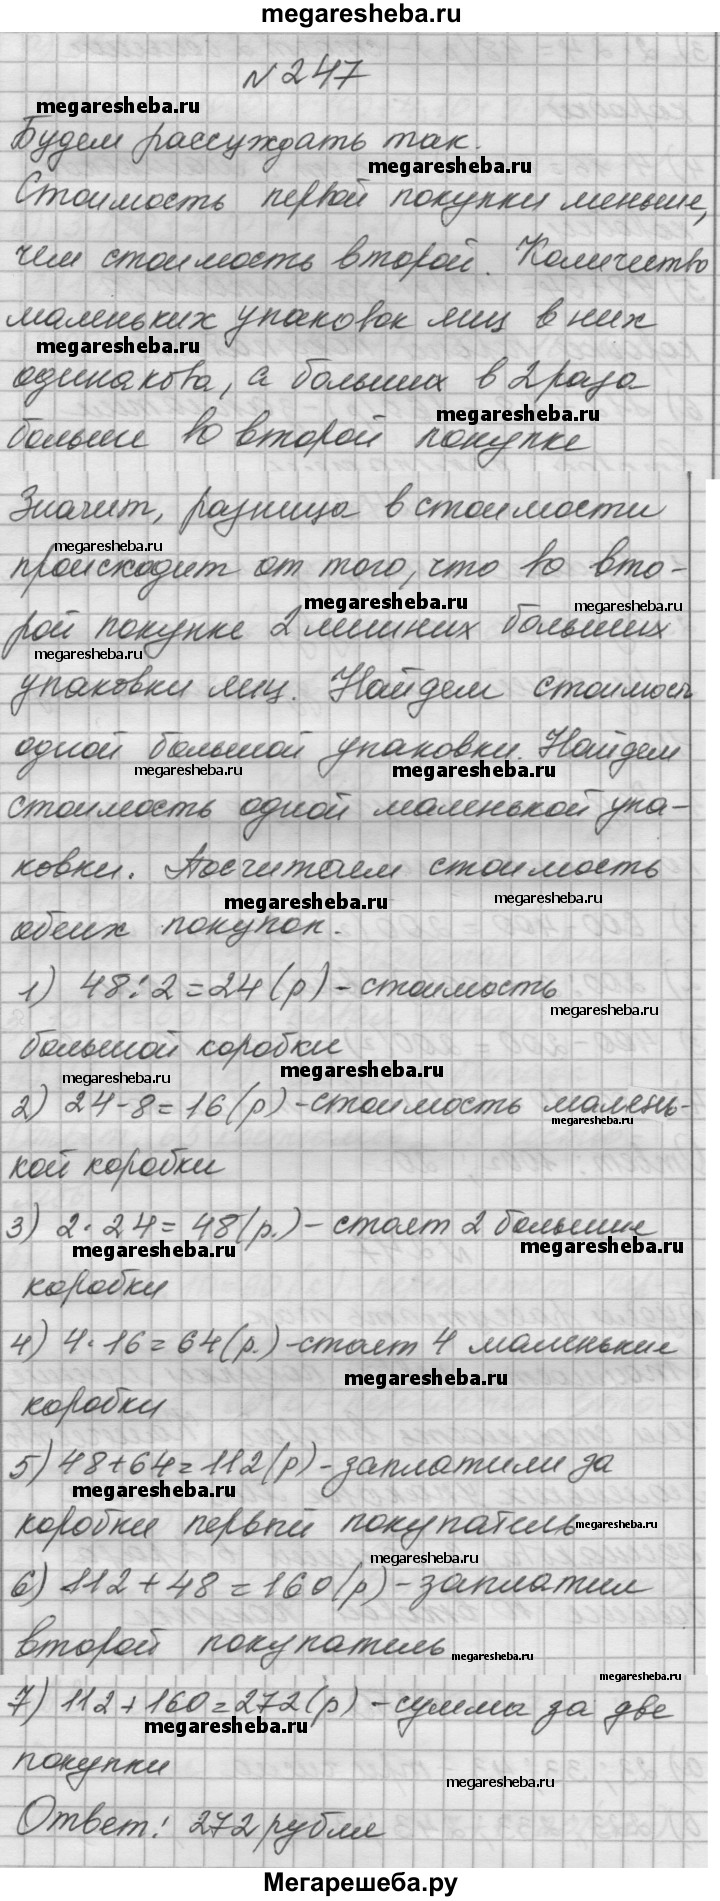 megaresheba.ru
№ 247
megaresheba.ru
Будем рассуждать так.
megaresheba.ru
Стоимость первой покупки меньше,
чем стоимость второй. Количество
маленьких упаковок яиц в них
megaresheba.ru
одинакова, а больших в 2 раза
megaresheba.ru
больше во второй покупке
Значит, разница в стоимости
megaresheba.ru
происходит от того, что во вто-
megaresheba.ru
megaresheba.ru
рой покупке 2 лишних больших
megaresheba.ru
упаковки яиц. Найдем стоимость
одной большой упаковки. Найдем
megaresheba.ru
megaresheba.ru
стоимость одной маленькой упа-
ковки. Посчитаем стоимость
megaresheba.ru
megaresheba.ru
обеих покупок.
1) 48:2=24(р) - стоимость
megaresheba.ru
большой коробки
megaresheba.ru
megaresheba.ru
2) 24-8=16(р) - стоимость малень-
megaresheba.ru
кой коробки
3) 2·24=48(р.) - стоят 2 большие
megaresheba.ru
megaresheba.ru
коробки
4) 4·16=64(р.) - стоят 4 маленькие
megaresheba.ru
коробки
5) 48+64=112(р) - заплатили за
megaresheba.ru
коробки первый покупатель
megaresheba.ru
megaresheba.ru
6) 112+48=160(р) - заплатил
второй покупатель
megaresheba.ru
megaresheba.ru
7) 112+160=272(р) - сумма за две
megaresheba.ru
покупки
megaresheba.ru
Ответ: 272 рубля
Мегарешеба.ру